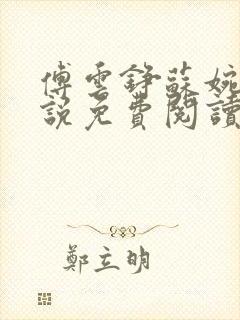 傅雲錚蘇婉
說免費閱讀
鄭立明